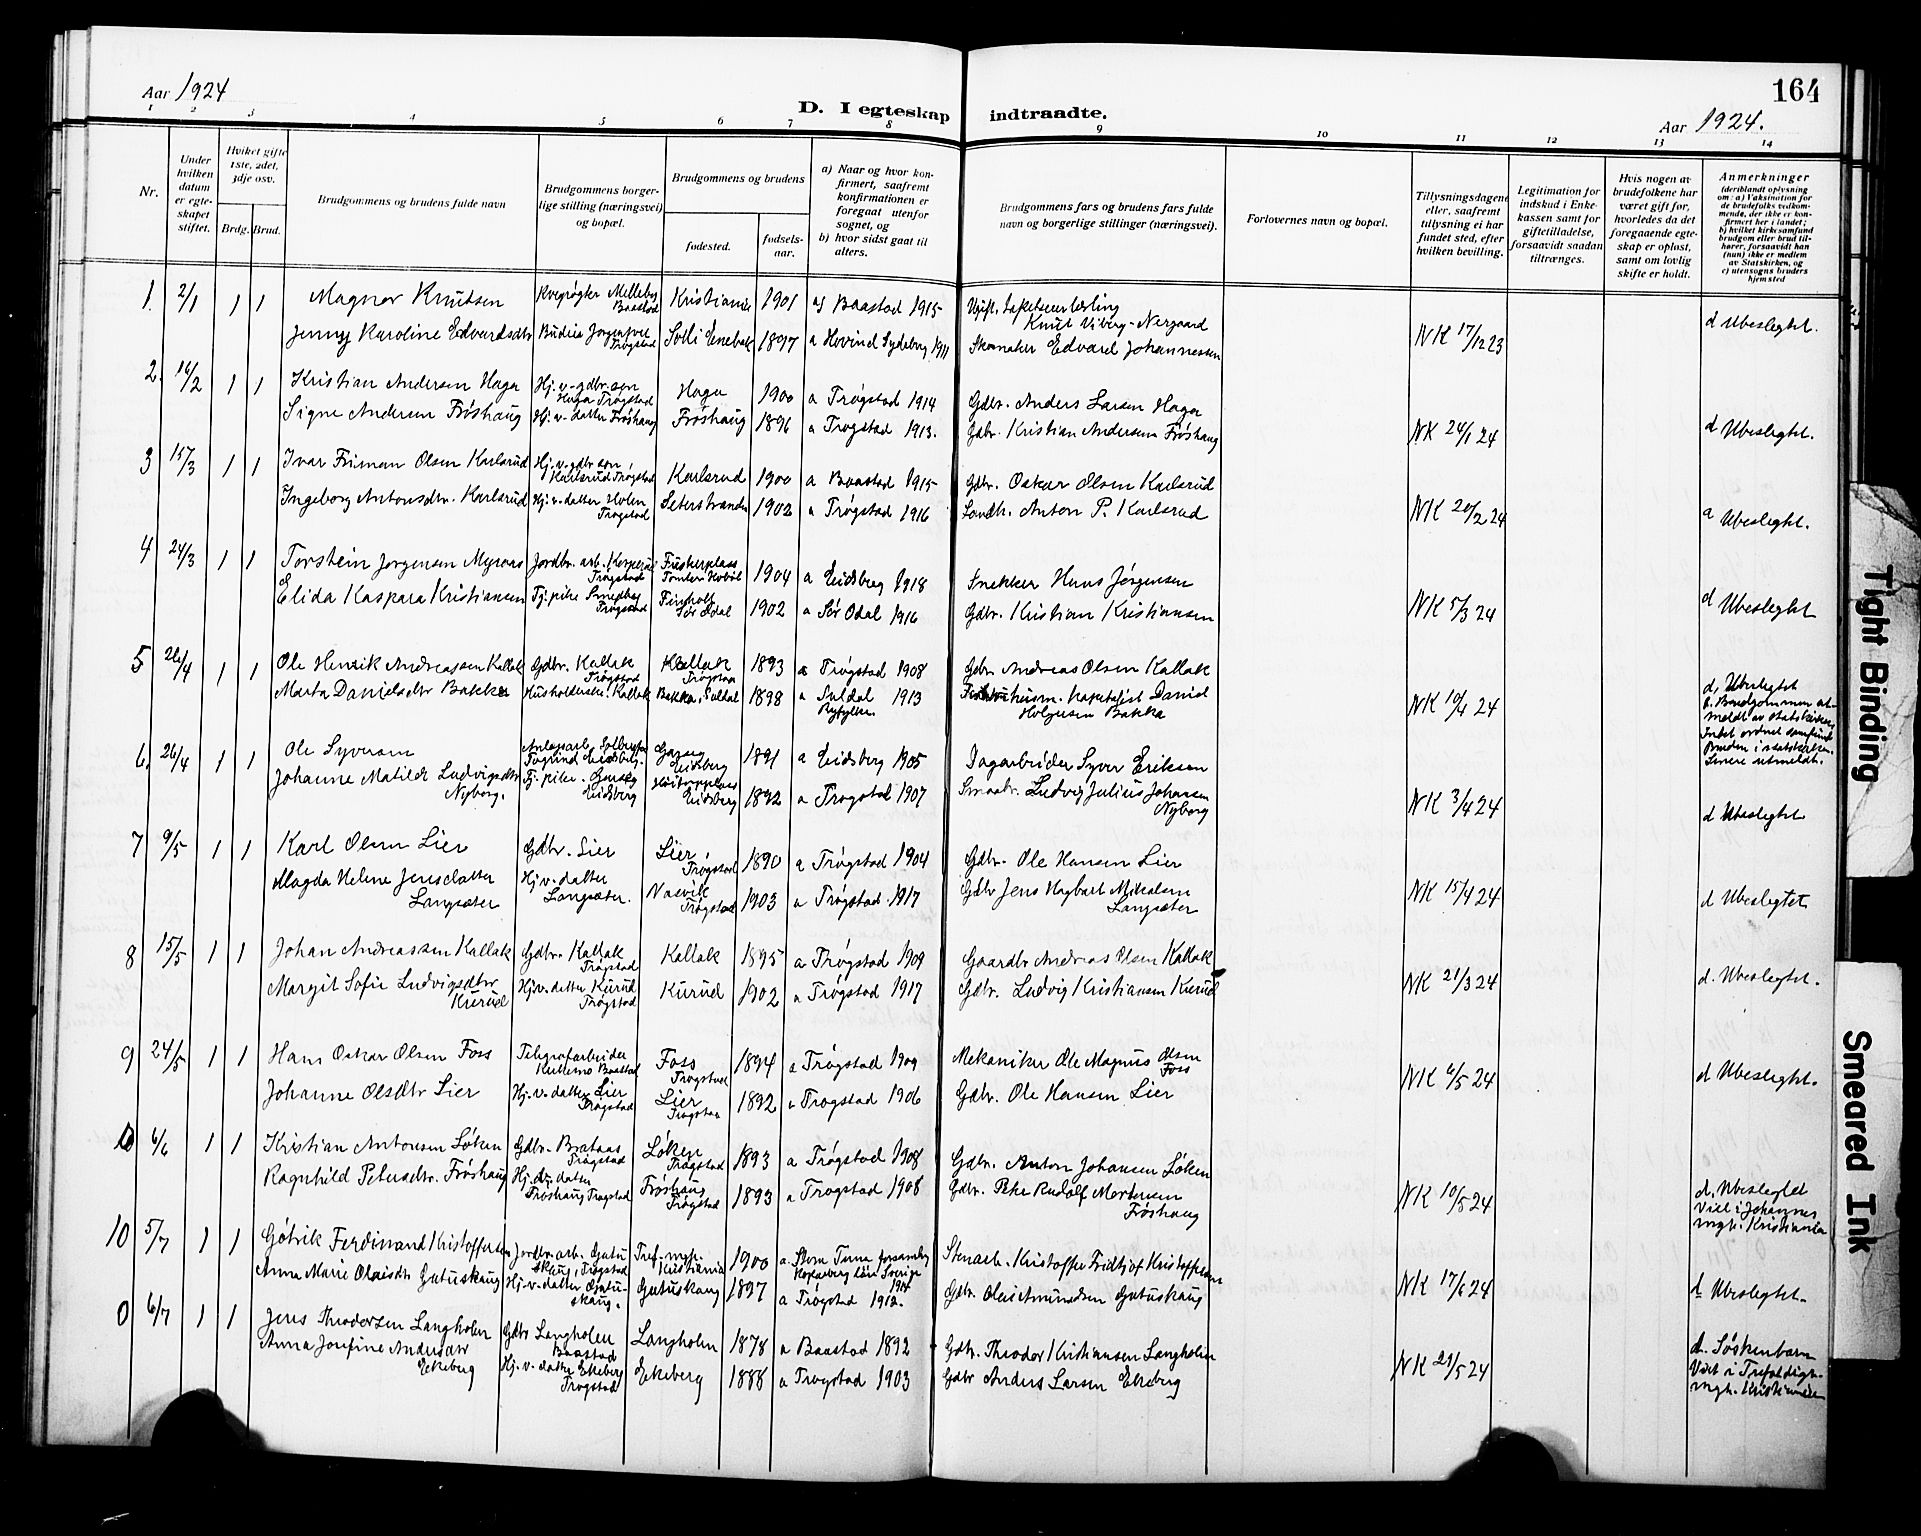 164
Aar 1924
D. I egteskap indtraadte.
Aar 1924.
1 2 3 4 5 6 7 8 9 10 11 12 13 14
Nr.
Under hvilken datum er egteskapet stiftet.
Hviket gifte 1ste, 2det, 3dje osv.
Brdg. Brud.
Brudgommens og brudens fulde navn
Brudgommens borgerlige stilling (næringsvei) og bopæl.
Brudgommens og brudens
fødested.
fødselsaar.
a) Naar og hvor konfirmert, saafremt konfirmationen er foregaat utenfor sognet, og
b) hvor sidst gaat til alters.
Brudgommens fars og brudens fars fulde navn og borgerlige stillinger (næringsvei).
Forlovernes navn og bopæl.
Tillysningsdagene eller, saafremt tillysning ei har fundet sted, efter hvilken bevilling.
Legitimation for indskud i Enkekassen samt for giftetilladelse, forsaavidt saadan tiltrænges.
Hvis nogen av brudefolkene har været gift før, hvorledes da det foregaaende egteskap er opløst, samt om lovlig skifte er holdt.
Anmerkninger
(deriblandt oplysning om: a) Vaksination for de brudefolks vedkommende, der ikke er konfirmert her i landet; b) hvilket kirkesamfund brudgom eller brud tilhører, forsaavidt han (hun) ikke er medlem av Statskirken, og c) utensogns bruders hjemsted
1. 2/1 1 1 Magnor Knutsen Kvegrøgter Melleby Baastad Kristiania 1901 a Baastad 1915 Knut Viberg-Nergaard
Jenny Karoline Edvardsdtr Budeie Trøgstad Solli Enebak 1897 a Hovind Sydeberg 1911 Skomaker Edvard Johannessen NK 17/12 23 d Ubeslegtet.
2. 16/2 1 1 Kristian Andersen Haga Hj.v. gdbr. søn Haga Trøgstad Haga 1900 a Trøgstad 1914 Gdbr. Anders Larsen Haga
Signe Andersen Frøshaug Hj. v. datter Frøshaug Frøshaug 1896 a Trøgstad 1913. Gdbr. Kristian Andersen Frøshaug NK 24/1 24 d Ubeslegtet.
3 15/3 1 1 Ivar Friman Olsen Karlsrud Hj. v. gdbr søn, Karlsrud Trøgstad Karlsrud 1900 a Baastad 1915 Gdbr. Oskar Olsen Karlsrud
Ingeborg Antonsdtr. Karlsrud Hj. v. datter Holen Trøgstad Seterstranden 1902 a Trøgstad 1916 Landh. Anton P. Karlsrud NK 20/2 24 a Ubeslegtet.
4 24/3 1 1 Torstein Jørgensen Myraas Jordbr. arb. Trøgstad Tomter Hobøl 1904 a Eidsberg 1918 Snekker Hans Jørgensen
Elida Kaspara Kristiansen Tj. pike Smedby Trøgstad Finholt Sør Odal 1902 a Sør Odal 1916 Gdbr. Kristian Kristiansen NK 5/3 24 d Ubeslegtet
5 26/4 1 1 Ole Henrik Andreassen Kallak Gdbr. Kallak Trøgstad Kallak Trøgstad 1893 a Trøgstad 1908 Gdbr Andreas Olsen Kallak
Marta Danielsdtr Bakka Husholderske, Kallak Bakka, Suldal 1898 a Suldal Ryfylke. 1913 Daniel Holgersen Bakka NK 10/4 24 d, Ubeslegtet
Brudgommen utmeldt av statskirken, Intet ordnet samfund Bruden i statskirken. Senere utmeldt.
6. 26/4 1 1 Ole Syversen Anlægsarb. Eidsberg. Garseg Eidsberg 1891 a Eidsberg 1905 Dagarbeider Syver Eriksen
Johanne Matilde Ludvigsdtr Nyborg. Tj. pike. Garseg Eidsberg Eidsberg 1892 a Trøgstad 1907 Smaabr. Ludvig Julius Johansen Nyborg NK 3/4 24 d Ubeslegtet
7 9/5 1 1 Karl Olsen Lier Gdbr. Lier Lier, Trøgstad 1890 a Trøgstad 1904 Gdbr. Ole Hansen Lier
Magda Helene Jensdatter Langsæter Hj. v. datter Langsæter. Naavik Trøgstad 1903 a Trøgstad 1917 Gdbr Jens Hagbart Mikalsen Langsæter NK 15/4 24 d Ubeslegtet
8 15/5 1 1 Johan Andreassen Kallak Gdbr. Kallak Trøgstad Kallak 1895 a Trøgstad 1909 Gaardbr Andreas Olsen Kallak
Margit Sofie Ludvigsdtr Kurud Hj.v. datter Kurud Trøgstad Kurud 1902 a Trøgstad 1917 Gdbr. Ludvig Kristiansen Kurud NK 21/3 24 d. Ubeslegtet.
9 24/5 1 1 Hans Oskar Olsen Foss Telegrafarbeider Baastad Foss Trøgstad 1894 a Trøgstad 1909 Mekaniker Ole Magnus Olsen Foss
Johanne Olsdtr Lier Hj. v. datter Lier Trøgstad Lier Trøgstad 1892 a Trøgstad 1906 Gdbr. Ole Hansen Lier NK 6/5 24 d Ubeslegtet.
6/6 1 1 Kristian Antonsen Løken Gdbr. Brataas Trøgstad Løken Trøgstad 1893 a Trøgstad 1908 Gdbr. Anton Johansen Løken
Ragnhild Petersdtr. Frøshaug Hj. v. datter Frøshaug Trøgstad Frøshaug Trøgstad 1893 a Trøgstad 1908 Gdbr. Peter Rudolf Mortensen Frøshaug NK 10/5 24 d, Ubeslegtet
Viet i Johannes mgh. Kristiania
10 5/7 1 1 Gøtrik Ferdinand Kristoffersen Jordbr. arb. Gutuskaug, Trøgstad Tref. mgh. Kristiania 1900 a. Stora Tuna Sverige 1914 Stenarb. Kristoffer Fridtjof Kristoffersen
Anna Marie Olaisdtr Gutuskaug Hj. v. datter Gutuskaug. Gutuskaug 1897 a Trøgstad 1912. Gdbr. Olai Amundsen Gutuskaug NK 17/6 24 d. Ubeslegtet.
0 6/7 1 1 Jens Theodorsen Langholen Gdbr Langholen Baastad Langholen 1878 a Baastad 1892 Gdbr. Theodor Kristiansen Langholen
Anna Josefine Andersdtr Ekeberg Hj. v. datter Ekeberg Trøgstad Ekeberg 1888 a Trøgstad 1903 Gdbr Anders Larsen Ekeberg NK 21/5 24 d. Søskenbarn
Viet i Trefoldigh. mgh. Kristiania
Tight Binding
Smeared Ink